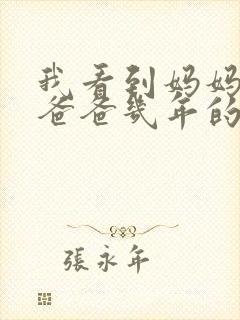 我看到妈妈
爸爸幾年的
張永年